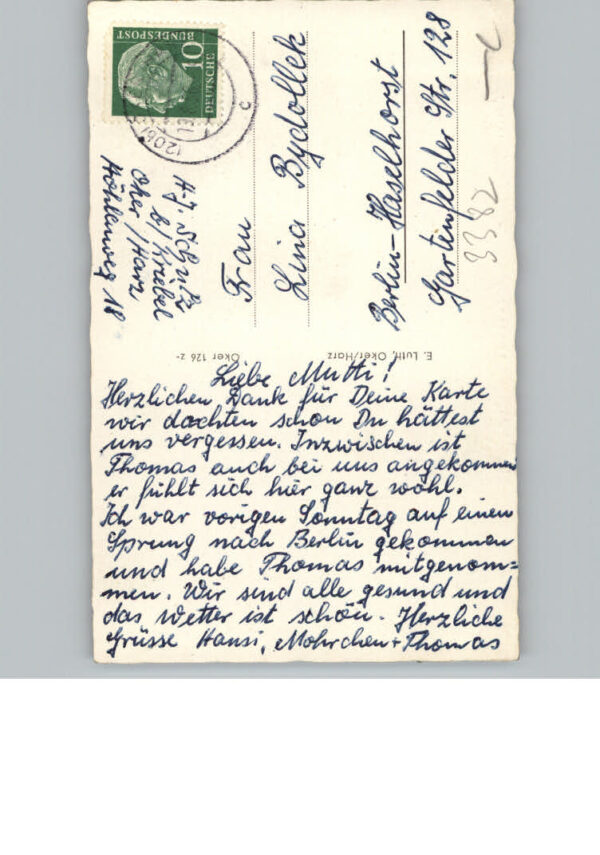 Liebe Mutti!
Herzlichen Dank für Deine Karte
wir dachten schon Du hättest
uns vergessen. Inzwischen ist
Thomas auch bei uns angekommen
er fühlt sich hier ganz wohl.
Ich war vorigen Sonntag auf einen
Sprung nach Berlin gekommen
und habe Thomas mitgenom=
men. Wir sind alle gesund und
das Wetter ist schön. Herzliche
Grüsse Hansi, Mohrchen + Thomas
E. Luth, Oker/Harz
Öker 126 z
H. J. Schulz
b/ Kriebel
Oker/Harz
Höhlenweg 18
DEUTSCHE
BUNDESPOST
10
(20b)
c
Frau
Lina Bydollek
Berlin-Haselhorst
Gartenfelder Str. 128
3382